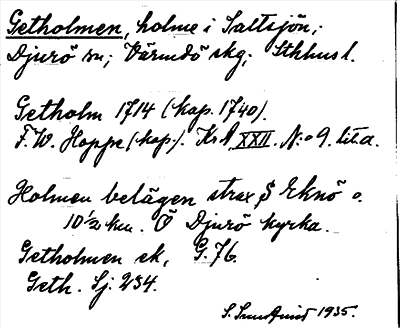 Getholmen, holme i Saltsjön;
Djurö sn; Värmdö skg; Sthlms l.
Getholm 1714 (kop. 1740).
F.W. Hoppe (kop.). KrA XXII. N:o 9. lit. a.
Holmen belägen strax S Eknö o.
10½ km. Ö Djurö kyrka.
Getholmen ek, G. 76.
Geth. Sj. 254.
S. 1935.